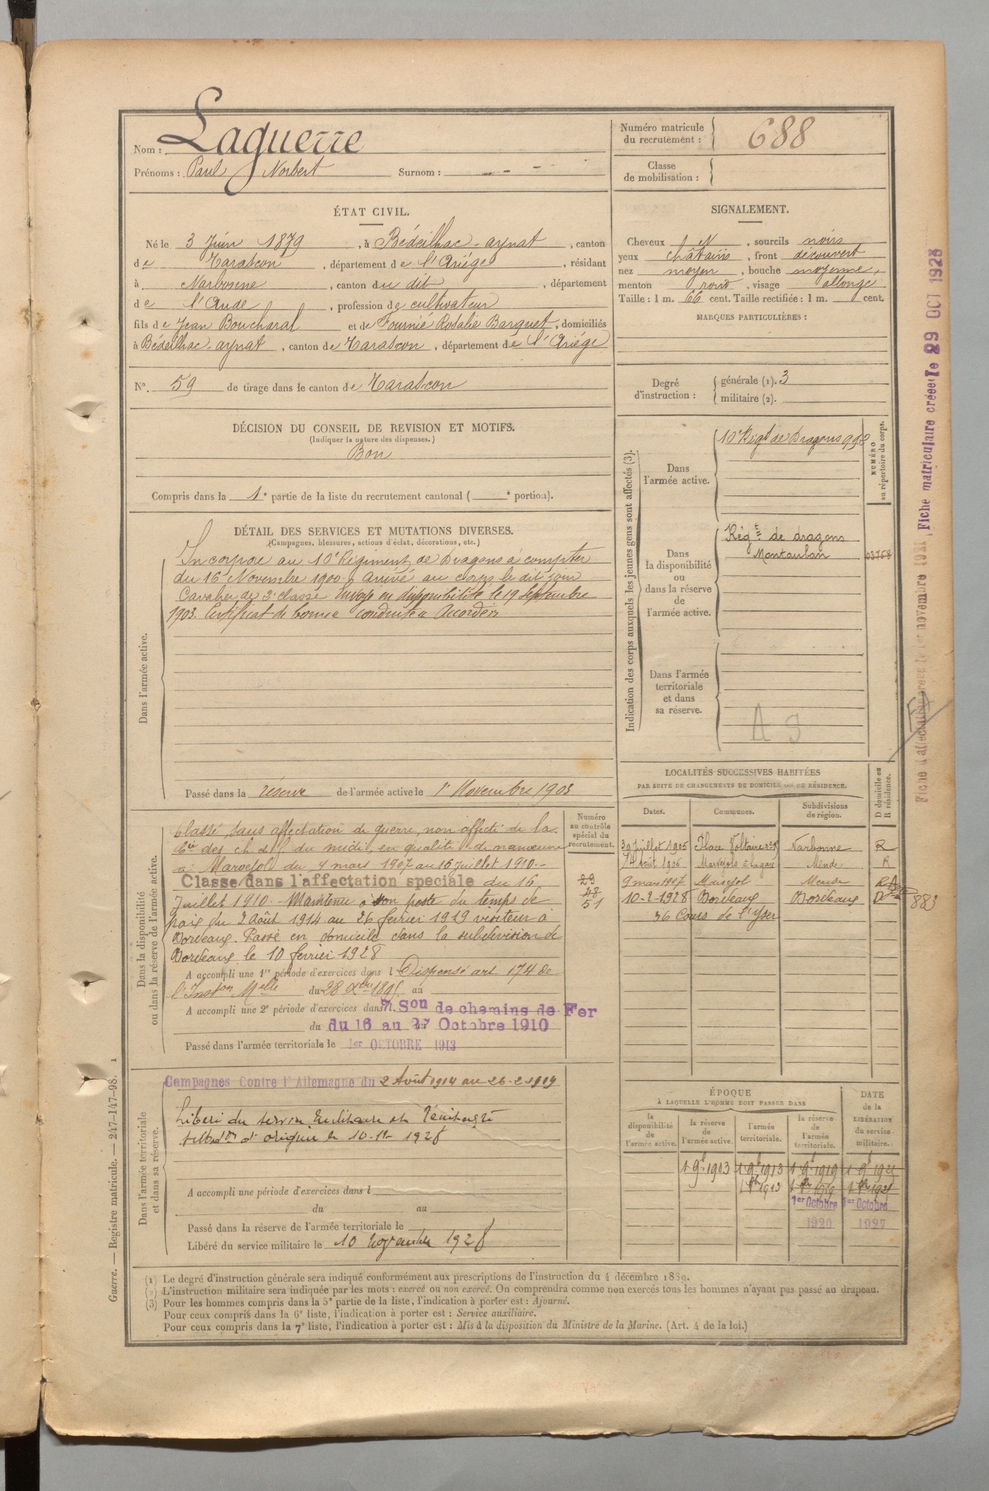 Nom : Laguerre
Prénoms : Paul Norbert Surnom : - - -
Numéro matricule du recrutement : 688
Classe de mobilisation :
ÉTAT CIVIL.
Né le 3 Juin 1879, à Bédeilhac-aynat, canton
de Tarascon, département de l'Ariége, résidant
à Narbonne, canton du dit, département
de l'Aude, profession de cultivateur
fils de Jean Boucharal et de Fournié Rosalie Barguet, domiciliés
à Bédeilhac-aynat, canton de Tarascon, département de l'Ariége
N° 59 de tirage dans le canton de Tarascon
SIGNALEMENT.
Cheveux N, sourcils noirs
yeux châtains, front découvert
nez moyen, bouche moyenne,
menton rond, visage allongé
Taille : 1 m. 66 cent. Taille rectifiée : 1 m. cent.
MARQUES PARTICULIÈRES :
Degré d'instruction : générale (1). 3
militaire (2).
DÉCISION DU CONSEIL DE REVISION ET MOTIFS.
(Indiquer la nature des dispenses.)
Bon
Compris dans la 1e partie de la liste du recrutement cantonal ( e portion).
DÉTAIL DES SERVICES ET MUTATIONS DIVERSES.
(Campagnes, blessures, actions d'éclat, décorations, etc.)
Dans l'armée active.
Incorporé au 10e Régiment de Dragons à compter
du 16 Novembre 1900. Arrivé au corps le dit jour
Cavalier de 2e classe. Envoyé en disponibilité le 19 Septembre
1903. Certificat de bonne conduite accordé
Passé dans la réserve de l'armée active le 1er Novembre 1903
Indication des corps auxquels les jeunes gens sont affectés (3).
NUMÉRO au répertoire du corps.
Dans l'armée active.
10e Régt de Dragons 990
Dans la disponibilité ou dans la réserve de l'armée active.
Régt de dragons
Montauban
Dans l'armée territoriale et dans sa réserve.
A S
Dans la disponibilité ou dans la réserve de l'armée active.
Numéro au contrôle spécial du recrutement.
Classé sans affectation de guerre, non affecté de la
Cie des ch. de f. du midi en qualité de manœuvre
à Marvejol du 9 mars 1907 au 16 juillet 1910.-
Classé dans l'affectation spéciale du 16
Juillet 1910. Maintenu à son poste du temps de
paix du 2 Août 1914 au 26 février 1919 visiteur à
Bordeaux. Passé en domicile dans la subdivision de
Bordeaux le 10 février 1928
51
A accompli une 1re période d'exercices dans l Dispensé art 174 de
l'Inston Melle du 28 Xbre 1895 au
A accompli une 2e période d'exercices dans 7e Son de chemins de Fer
du 16 au 27 Octobre 1910
Passé dans l'armée territoriale le 1er OCTOBRE 1913
LOCALITÉS SUCCESSIVES HABITÉES
PAR SUITE DE CHANGEMENTS DE DOMICILE OU DE RÉSIDENCE.
Dates. Communes. Subdivisions de région. D domicile ou R résidence.
Place Voltaire Narbonne R
Mende R
9 mars 1907 Marvejol Mende
10-2-1928 Bordeaux Bordeaux D
36 Cours de l'Yser
883
Dans l'armée territoriale et dans sa réserve.
Campagnes Contre l'Allemagne du 2 Août 1914 au 26-2-1919
Libéré du service
le 10 1928
A accompli une période d'exercices dans l
du au
Passé dans la réserve de l'armée territoriale le
Libéré du service militaire le 10 Novembre 1928
ÉPOQUE
À LAQUELLE L'HOMME DOIT PASSER DANS
DATE de la LIBÉRATION du service militaire.
la disponibilité de l'armée active. la réserve de l'armée active. l'armée territoriale. la réserve de l'armée territoriale.
1 9bre 1913 1 9bre 1913 1 9bre 1919
1er Octobre 1920
1er Octobre 1927
(1) Le degré d'instruction générale sera indiqué conformément aux prescriptions de l'instruction du 4 décembre 1889.
(2) L'instruction militaire sera indiquée par les mots : exercé ou non exercé. On comprendra comme non exercés tous les hommes n'ayant pas passé au drapeau.
(3) Pour les hommes compris dans la 5e partie de la liste, l'indication à porter est : Ajourné.
Pour ceux compris dans la 6e liste, l'indication à porter est : Service auxiliaire.
Pour ceux compris dans la 7e liste, l'indication à porter est : Mis à la disposition du Ministre de la Marine. (Art. 4 de la loi.)
Guerre. — Registre matricule. — 247-147-98.
Fiche matriculaire créée le 29 OCT 1923